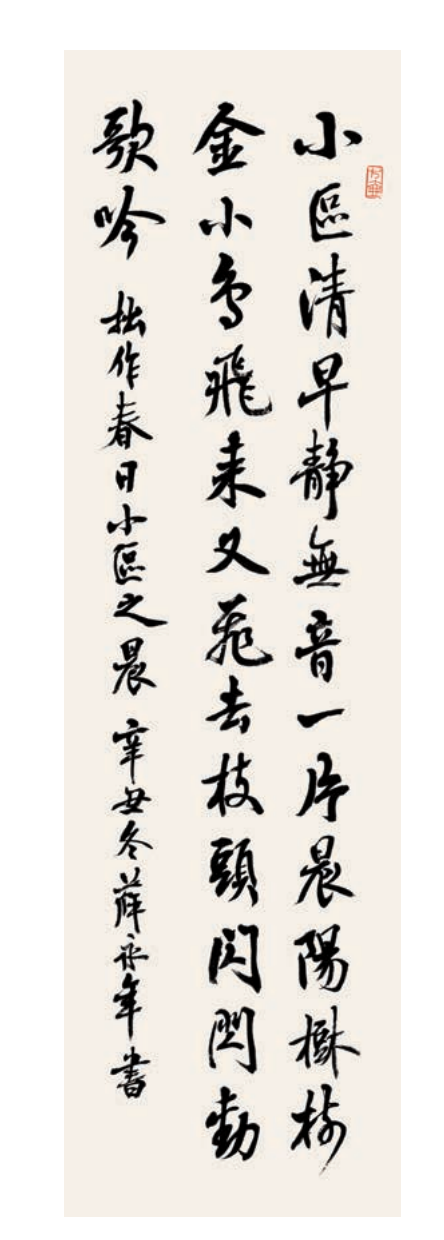 小區清早靜無音一片晨陽樹樹
金小鳥飛來又飛去枝頭閃閃動
歌吟 拙作春日小區之晨 辛丑冬薛永年書